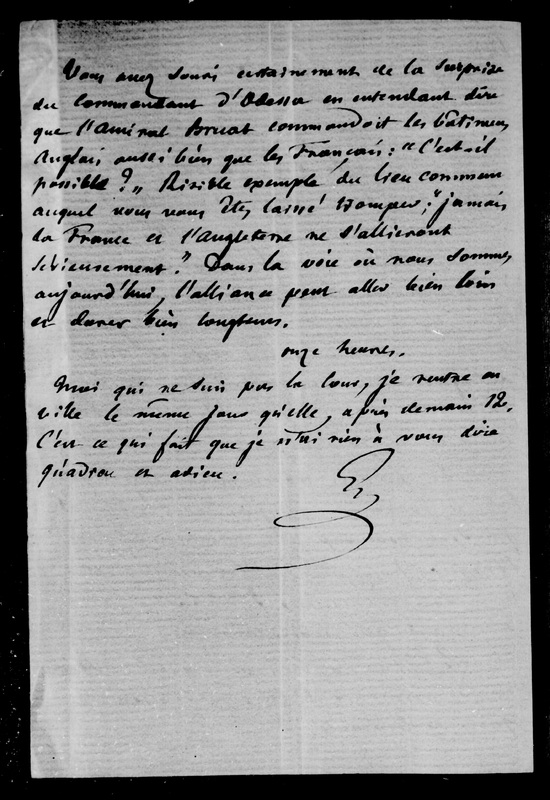 Vous avez souri certainement de la surprise
du Commandant d'Odessa en entendant dire
que l'amiral Bruat commandoit les bâtimens
Anglais aussi bien que les Français : "C'est-il
possible ?" Risible exemple du lieu commun
auquel vous vous êtes laissé tromper ; "jamais
la France et l'Angleterre ne s'allieront
sérieusement." Dans la voie où nous sommes
aujourd'hui, l'alliance peut aller bien loin
et durer bien longtems.
onze heures.
Moi qui ne suis pas la Cour, je rentre en
ville le même jour qu'elle, après demain 12.
C'est ce qui fait que je n'ai rien à vous dire
qu'adieu et adieu.